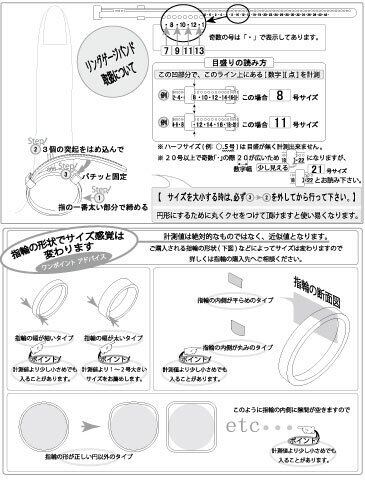 リングゲージバンド
取扱について
・8・10・12・1
7 9 11 13
奇数の号は「・」で表示してあります。
目盛りの読み方
この凹部分で、このライン上にある[数字][点]を計測
例
この場合 8 号サイズ
例
この場合 11 号サイズ
※ハーフサイズ(例:○.5号)は目盛が無く計測出来ません。
※20号以上で奇数「・」の際20が広いため になりますが、
数字幅 少し見える 21号サイズ
とお読み下さい。
【 サイズを大小する時は,必ず③→②を外してから行って下さい。】
円形にするために丸くクセをつけて頂けますと使い易くなります。
Step
② 3個の突起をはめ込んで
Step
③ パチッと固定
Step
①
指の一番太い部分で締める
指輪の形状でサイズ感覚は
変わります
ワンポイント アドバイス
計測値は絶対的なものではなく、近似値となります。
ご購入される指輪の形状(下図)などによってサイズは変わりますので
詳しくは指輪の購入先へご相談ください。
指輪の幅が細いタイプ
ポイント
計測値より少し小さめでも
入ることがあります。
指輪の幅が太いタイプ
ポイント
計測値より1〜2号大きい
サイズをお薦めします。
指輪の内側が平らめのタイプ
指輪の内側が丸みのタイプ
ポイント
計測値より少し小さめでも
入ることがあります。
指輪の断面図
指輪の形が正しい円以外のタイプ
このように指輪の内側に隙間が空きますので
etc・・・・
ポイント
計測値より少し小さめでも
入ることがあります。